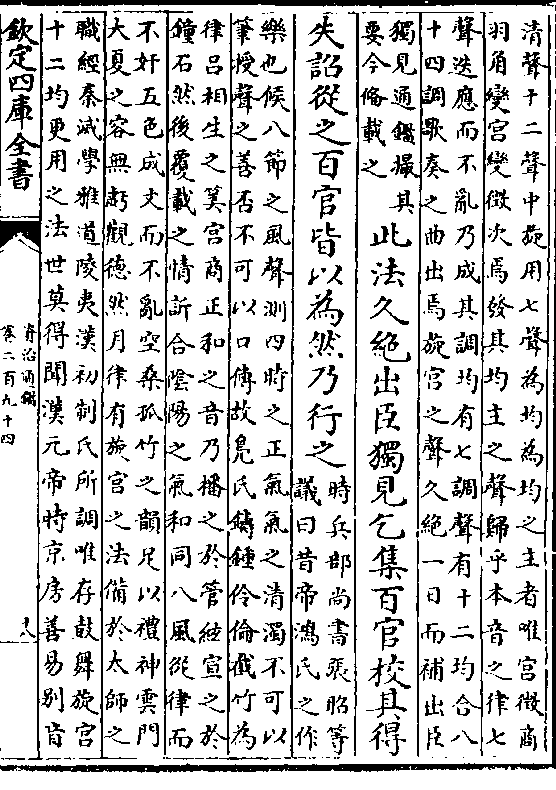 清聲十二聲中旋用七聲為均為均之主者唯宮徵商
羽角變宮變徵次焉發其均主之聲歸乎本音之律七
聲迭應而不亂乃成其調均有七調聲有十二均合八
十四調歌奏之曲出焉旋宮之聲久絕一日而補出臣
獨見通鑑撮其
要今俻載之
此法久絕出臣獨見乞集百官校其得
失詔從之百官皆以為然乃行之
時兵部尚書張昭等
議曰昔帝鴻氏之作
樂也候八節之風聲測四時之正氣氣之清濁不可以
筆授聲之善否不可以口傳故鳬氏鑄鍾伶倫截竹為
律吕相生之筭宮商正和之音乃播之於管絃宣之於
鐘石然後覆載之情訢合陰陽之氣和同八風從律而
不奸五色成文而不亂空桑孤竹之韻足以禮神雲門
大夏之容無虧觀德然月律有旋宮之法備於太師之
職經秦滅學雅道陵夷漢初制氏所調唯存鼓舞旋宮
十二均更用之法世莫得聞漢元帝時京房善易別音
欽定四庫全書
資治通鑑
卷二百九十四
十八